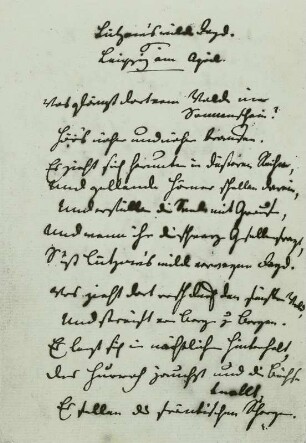 Lützow's wilde Jagd.
Leipzig am April.
Was glänzt dort vom Walde im
Sonnenschein?
Hör's näher und näher brausen.
Es zieht sich herunter in düsteren Reihn,
Und gellende Hörner schallen darein,
Und erfüllen die Seele mit Graus,
Und wenn ihr die schwarzen Gesellen fragt,
S'ist Lützow's wilde verwegene Jagd.
Was zieht dort rasch durch den finstern Wald,
Und streift von Berge zu Bergen.
Es legt sich in nächtlichen Hinterhalt,
Das Hurrah jauchzt und die Büchse
knallt,
Es fallen die fränkischen Schergen.